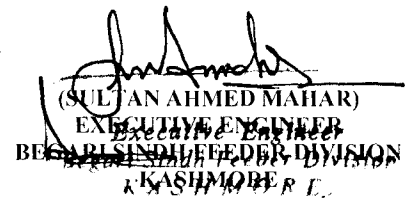 (SULTAN AHMED MAHAR)
EXECUTIVE ENGINEER
Executive Engineer
BEGARI SINDH FEEDER DIVISION
Begari Sindh Feeder Division
KASHMORE
KASHMORE